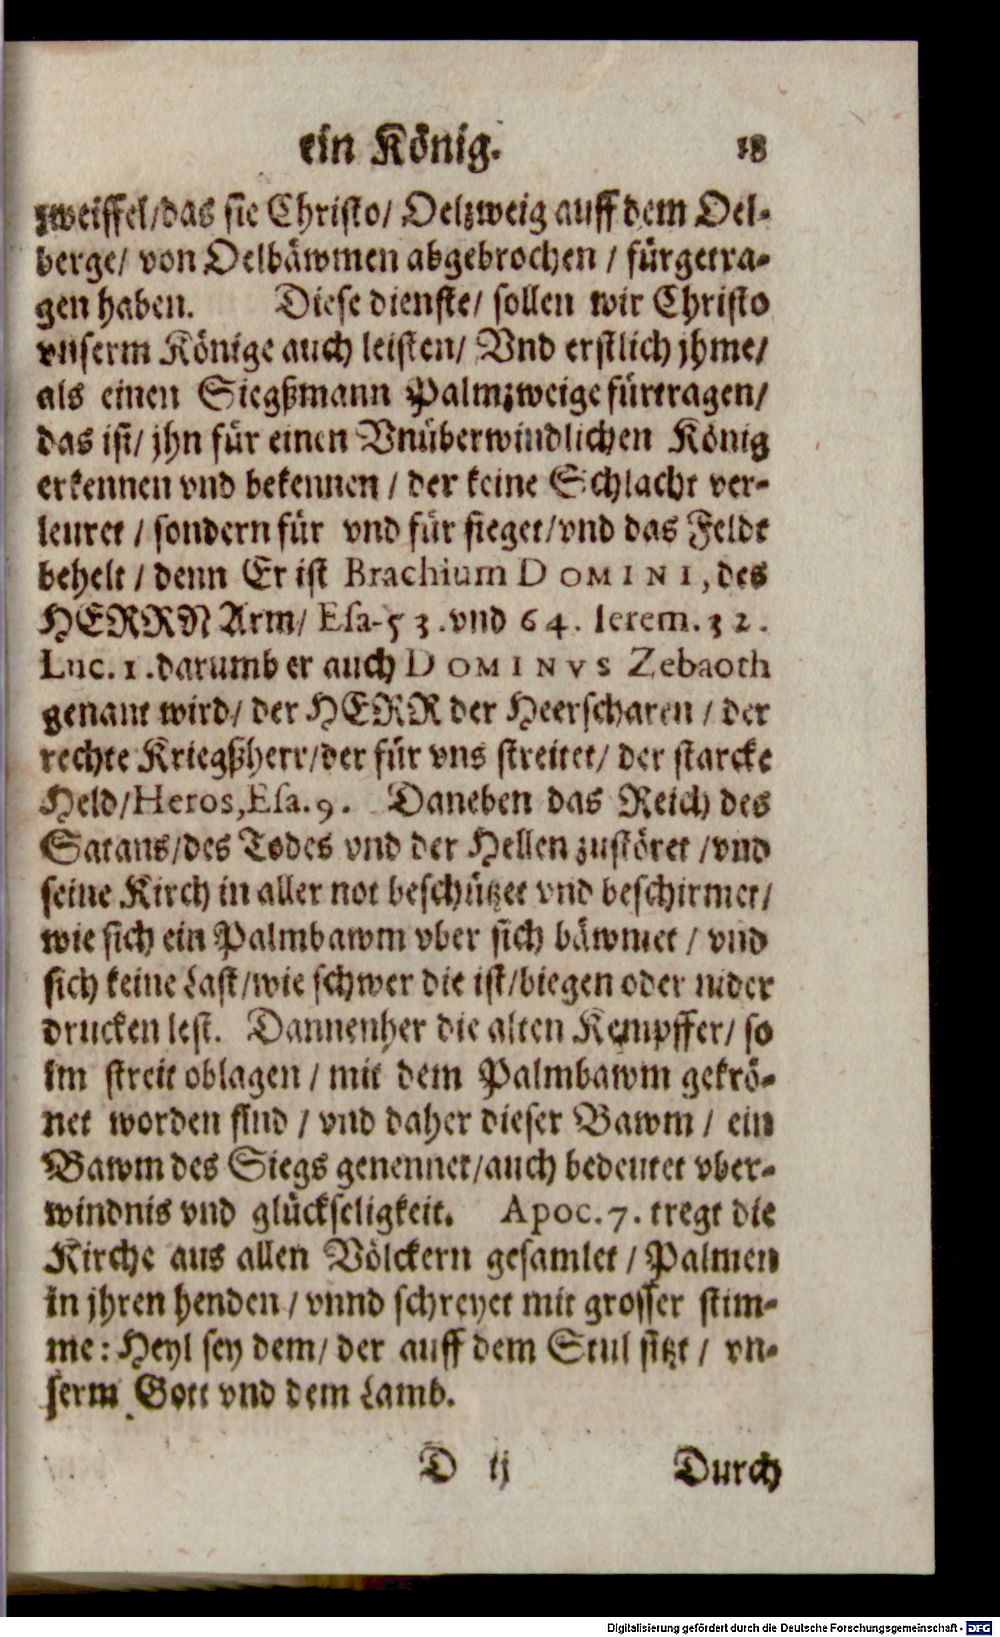 ein König. 18
zweiffel/das sie Christo/ Oelzweig auff dem Oel-
berge/ von Oelbäwmen abgebrochen / fürgetra-
gen haben. Diese dienste/ sollen wir Christo
vnserm Könige auch leisten/ Vnd erstlich jhme/
als einen Siegßmann Palmzweige fürtragen/
das ist/ jhn für einen Vnüberwindlichen König
erkennen vnd bekennen / der keine Schlacht ver-
leuret / sondern für vnd für sieget/vnd das Feldt
behelt / denn Er ist Brachium DOMINI, des
HERRN Arm/ Esa. 53. vnd 64. Ierem. 32.
Luc. 1. darumb er auch DOMINVS Zebaoth
genant wird/ der HERR der Heerscharen / der
rechte Kriegßherr/der für vns streitet/ der starcke
Held/Heros, Esa. 9. Daneben das Reich des
Satans/des Todes vnd der Hellen zustöret /vnd
seine Kirch in aller not beschützet vnd beschirmet/
wie sich ein Palmbawm vber sich bäwmet / vnd
sich keine Last/wie schwer die ist/biegen oder nider
drucken lest. Dannenher die alten Kempffer/ so
im streit oblagen / mit dem Palmbawm gekrö-
net worden sind / vnd daher dieser Bawm / ein
Bawm des Siegs genennet/auch bedeutet vber-
windnis vnd glückseligkeit. Apoc. 7. tregt die
Kirche aus allen Völckern gesamlet / Palmen
in jhren henden / vnnd schreyet mit grosser stim-
me: Heyl sey dem/ der auff dem Stul sitzt / vn-
serm Gott vnd dem Lamb.
D ij Durch
Digitalisierung gefördert durch die Deutsche Forschungsgemeinschaft - DFG